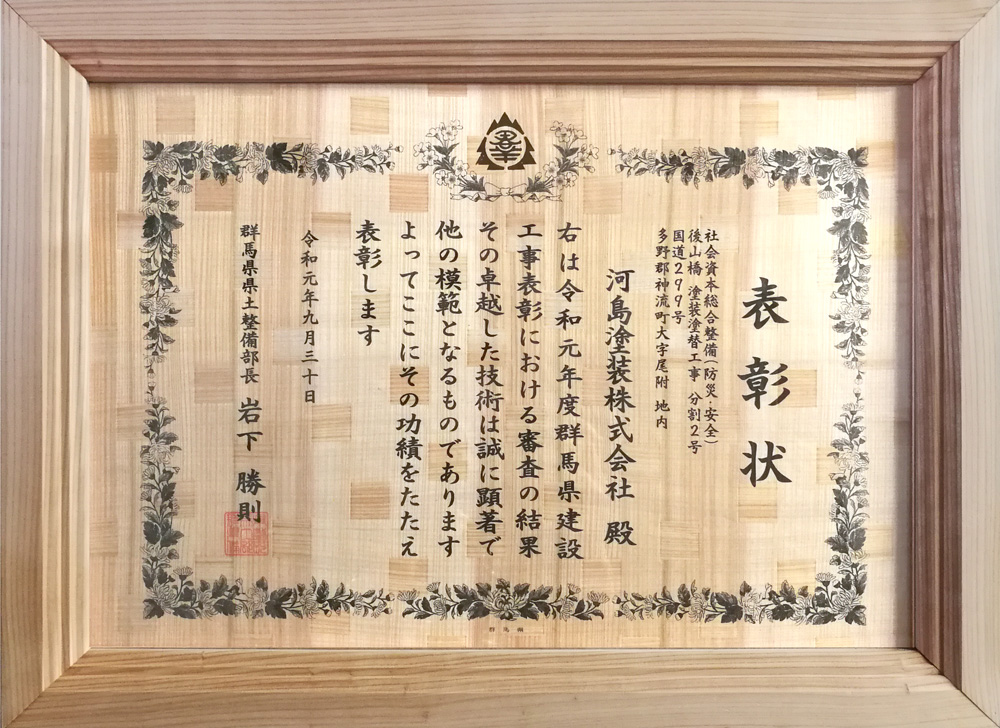 表彰状
社会資本総合整備(防災・安全)
後山橋 塗装塗替工事 分割2号
国道299号
多野郡神流町大字尾附 地内
河島塗装株式会社 殿
右は令和元年度群馬県建設
工事表彰における審査の結果
その卓越した技術は誠に顕著で
他の模範となるものであります
よってここにその功績をたたえ
表彰します
令和元年九月三十日
群馬県県土整備部長 岩下 勝則
群馬県